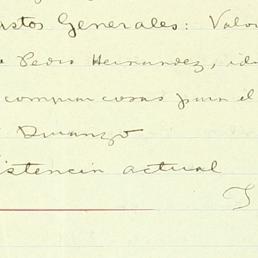 astos Generales: Valo
Pedro Hernandez, id
comprar cosas para el
Durango
istencia actual
T